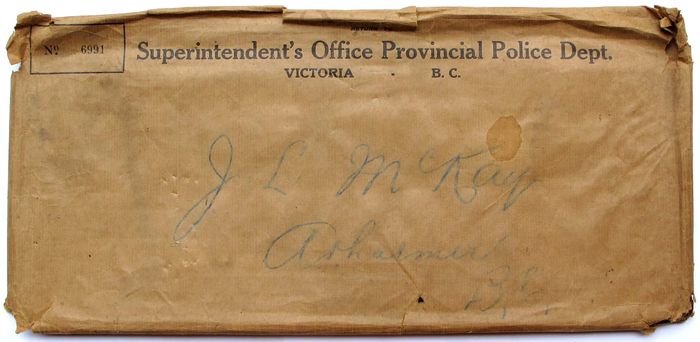 RETURN TO
Nº 6991
Superintendent's Office Provincial Police Dept.
VICTORIA - B. C.
J L McKay
B.C.